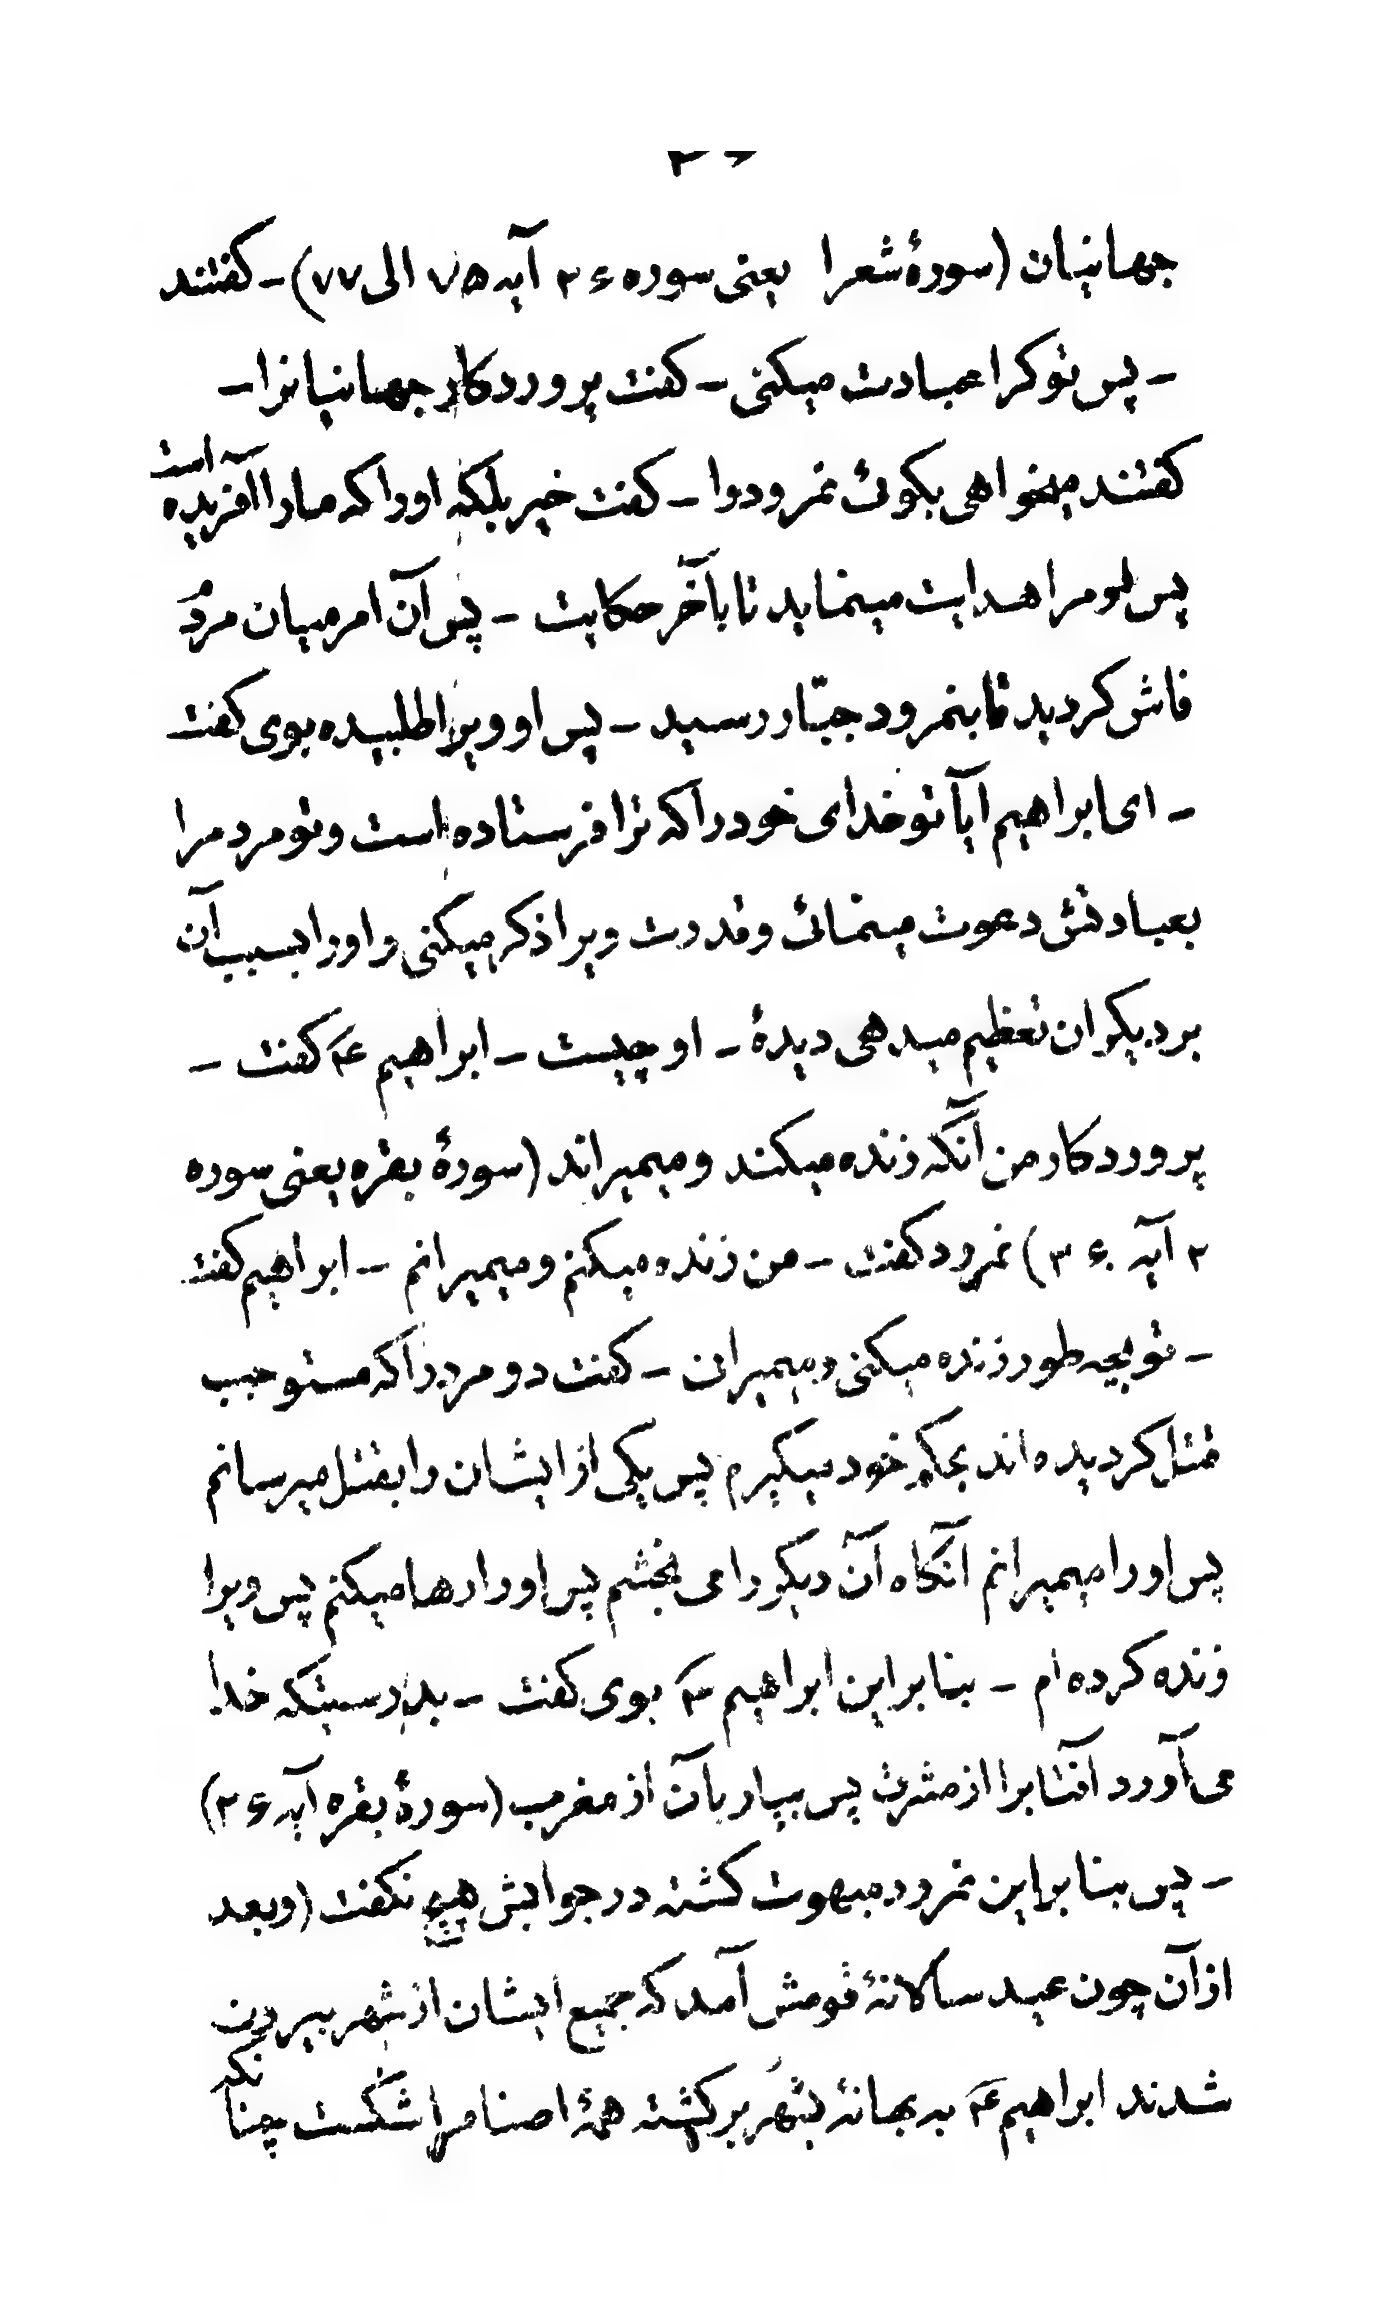 جهانیان (سورهٔ شعرا یعنی سوره ۲۶ آیه ۷۵ الی ۷۷) ــ کفتند
ــ پس تو کرا عبادت میکنی ــ کفت پروردکار جهانیانرا ــ
کفتند میخواهی بکوئ نمرودرا ــ کفت خیر بلکه اوراکه مارا آفریده است
پس او مرا هدایت مینماید تا بآخر حکایت ــ پس آن امر میان مردُم
فاش کردید تا بنمرود جبّار رسید ــ پس او ویرا طلبیده بوی کفت
ــ ای ابراهیم آیا تو خدای خودرا که ترا فرستاده است و تو مردمرا
بعبادتش دعوت مینمائ و قدرت ویرا ذکر میکنی و اورا بسبب آن
بر دیکران تعظیم میدهی دیدهٔ ــ او چیست ــ ابراهیم ع کفت ــ
پروردکار من آنکه زنده میکند و میمیراند (سورهٔ بقره یعنی سوره
۲ آیه ۲۶۰) نمرود کفت ــ من زنده میکنم و میمیرانم ــ ابراهیم کفت
ــ تو بچه طور زنده میکنی و میمیرانی ــ کفت دو مرد را که مستوجب
قتل کردیده اند بحکم خود میکیرم پس یکی از ایشان را بقتل میرسانم
پس اورا میمیرانم آنکاه آن دیکررا می بخشم پس اورا رها میکنم پس ویرا
زنده کرده ام ــ بنابراین ابراهیم ع بوی کفت ــ بدرستیکه خدا
می آورد آفتابرا از مشرق پس بیار بآن از مغرب (سورهٔ بقره آیه ۲۶۰)
ــ پس بنابراین نمرود مبهوت کشته در جوابش هیچ نکفت (و بعد
از آن چون عید سالانهٔ قومش آمد که جمیع ایشان از شهر بیرون
شدند ابراهیم ع به بهانهٔ بشهر برکشته همهٔ اصنامرا شکست چنانکه